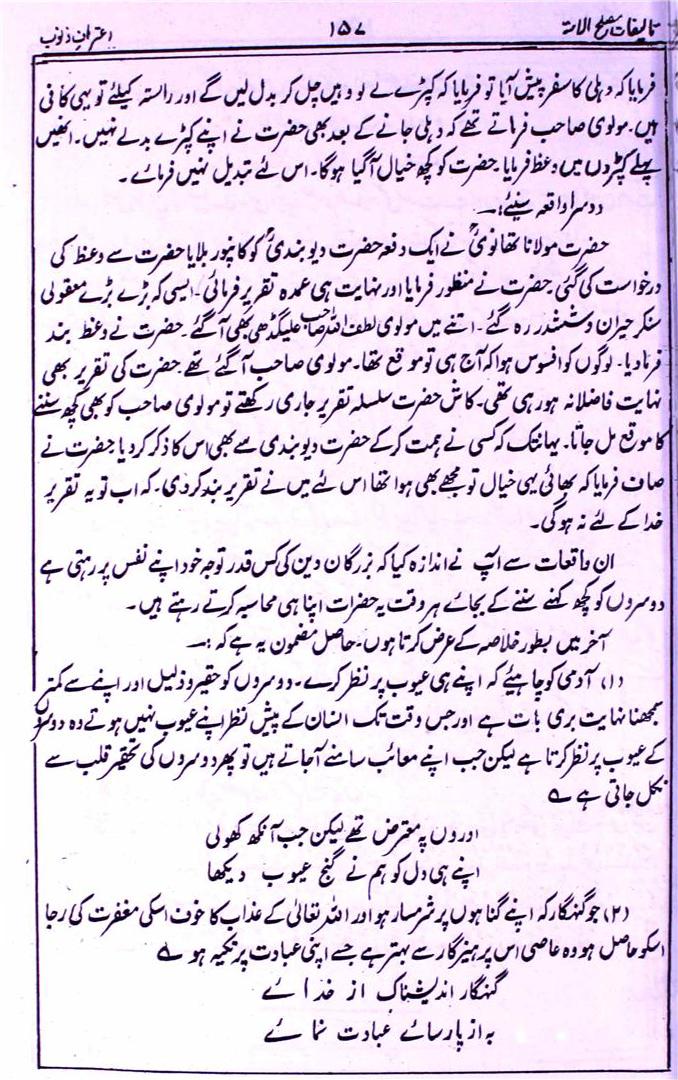 تالیفات مصلح الامۃ ۱۵۷ اعترافِ ذنوب
فرمایا کہ دہلی کا سفر پیش آیا تو فرمایا کہ کپڑے لے لو وہیں چل کر بدل لیں گے اور راستہ کیلئے تو یہی کافی
ہیں۔ مولوی صاحب فرماتے تھے کہ دہلی جانے کے بعد بھی حضرت نے اپنے کپڑے بدلے نہیں۔ انھیں
پہلے کپڑوں میں وعظ فرمایا۔ حضرت کو کچھ خیال آگیا ہوگا۔ اس لئے تبدیل نہیں فرمائے۔
دوسرا واقعہ سنیئے:۔
حضرت مولانا تھانویؒ نے ایک دفعہ حضرت دیوبندیؒ کو کانپور بلایا حضرت سے وعظ کی
درخواست کی گئی حضرت نے منظور فرمایا اور نہایت ہی عمدہ تقریر فرمائی۔ ایسی کہ بڑے بڑے معقولی
سنکر حیران و ششدر رہ گئے۔ اتنے میں مولوی لطف اللہ صاحب علیگڈھی بھی آگئے۔ حضرت نے وعظ بند
فرمادیا۔ لوگوں کو افسوس ہوا کہ آج ہی تو موقع تھا۔ مولوی صاحب آگئے تھے حضرت کی تقریر بھی
نہایت فاضلانہ ہو رہی تھی۔ کاش حضرت سلسلہ تقریر جاری رکھتے تو مولوی صاحب کو بھی کچھ سننے
کا موقع مل جاتا۔ یہانتک کہ کسی نے ہمت کرکے حضرت دیوبندی سے بھی اس کا ذکر کر دیا حضرت نے
صاف فرمایا کہ بھائی یہی خیال تو مجھے بھی ہوا تھا اس لئے میں نے تقریر بند کر دی۔ کہ اب تو یہ تقریر
خدا کے لئے نہ ہوگی۔
ان واقعات سے آپ نے اندازہ کیا کہ بزرگان دین کی کس قدر توجہ خود اپنے نفس پر رہتی ہے
دوسروں کو کچھ کہنے سننے کے بجائے ہر وقت یہ حضرات اپنا ہی محاسبہ کرتے رہتے ہیں۔
آخر میں بطور خلاصہ کے عرض کرتا ہوں۔ حاصل مضمون یہ ہے کہ:۔
(۱) آدمی کو چاہیئے کہ اپنے ہی عیوب پر نظر کرے۔ دوسروں کو حقیر و ذلیل اور اپنے سے کمتر
سمجھنا نہایت بری بات ہے اور جس وقت تک انسان کے پیش نظر اپنے عیوب نہیں ہوتے وہ دوسروں
کے عیوب پر نظر کرتا ہے لیکن جب اپنے معائب سامنے آجاتے ہیں تو پھر دوسروں کی تحقیر قلب سے
نکل جاتی ہے ؎
اوروں پہ معترض تھے لیکن جب آنکھ کھولی
اپنے ہی دل کو ہم نے گنج عیوب دیکھا
(۲) جو گنہگار کہ اپنے گناہوں پر شرمسار ہو اور اللہ تعالیٰ کے عذاب کا خوف اسکی مغفرت کی رجا
اسکو حاصل ہو وہ عاصی اس پرہیزگار سے بہتر ہے جسے اپنی عبادت پر تکیہ ہو ؎
گنہگار اندیشناک از خدائے
بہ از پارسائے عبادت نمائے